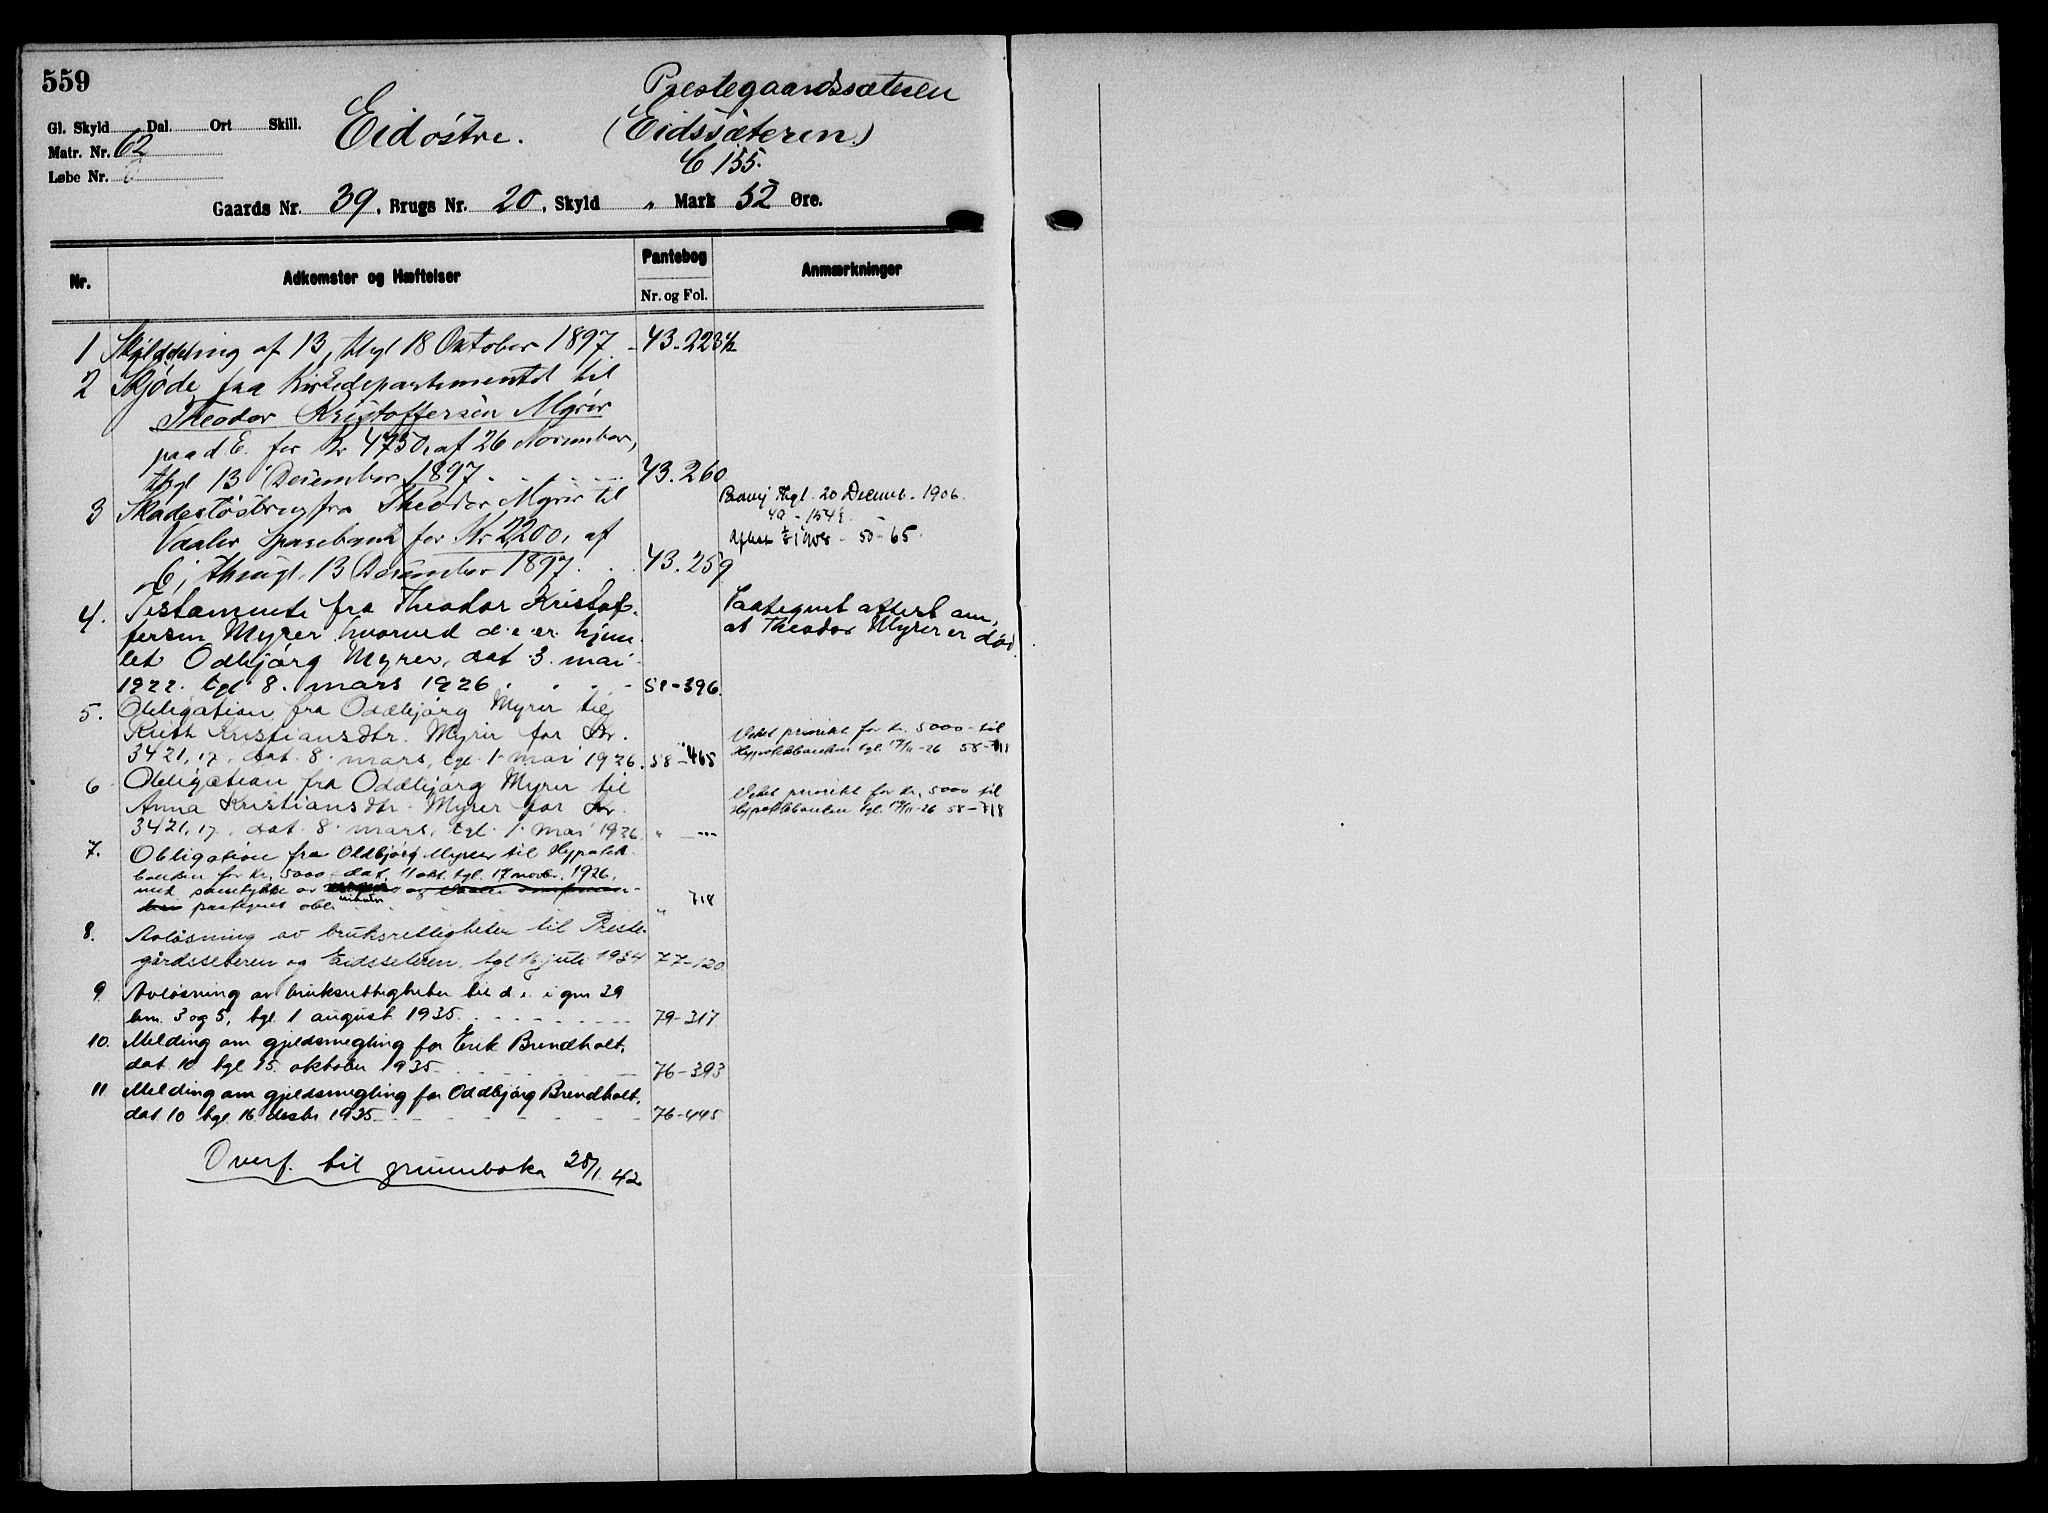 559
Prestegaardssæteren
Eid østre. (Eidssæteren)
C 155.
Gl. Skyld Dal. Ort Skill.
Matr. Nr. 62
Løbe Nr.
Gaards Nr. 39, Brugs Nr. 20, Skyld " Mark 52 Øre.
Nr. Adkomster og Hæftelser Pantebog Anmærkninger
Nr. og Fol.
1 Skylddeling af 13, thgl 18 Oktober 1897. - 43-223½
2 Skjøde fra Kirkedepartementet til
Theodor Kristoffersen Myrer
paa d. E. for Kr 4750, af 26 November,
thgl 13 December 1897. 43.260
3 Skadesløsbrev fra Theodor Myrer til
Vaaler Sparebank for Kr 2,200, af
6, thingl. 13 December 1897. 43.259
thgl. 20 Decemb. 1906.
49-154
Aflæst 1908 - 50-65.
4. Testamente fra Theodor Kristof-
fersen Myrer hvorved d. e. er hjem-
let Odbjørg Myrer, dat. 3. mai
1922. tgl 8. mars 1926. 58-396.
Paategnet attest om,
at Theodor Myrer er död.
5. Obligation fra Oddbjørg Myrer til
Ruth Kristiansdtr. Myrer for Kr.
3421,17, dat. 8. mars, tgl. 1. mai 1926. 58-465
Veket prioritet for kr. 5000- til
Hypotekbanken tgl. 17/11-26 58-718
6 Obligation fra Oddbjørg Myrer til
Anna Kristiansdtr. Myrer for Kr.
3421,17, dat. 8. mars, tgl. 1. mai 1926. " - "
Veket prioritet for kr. 5000 til
Hypotekbanken tgl. 17/11-26 58-718
7. Obligation fra Oddbjørg Myrer til Hypotek-
banken for kr. 5000 dat. 11 okt. tgl. 17 novbr. 1926,
med samtykke av og
paategnet obl. " 718
8. Avløsning av bruksrettigheter til Preste-
gårdsseteren og Eidsseteren, tgl 16 juli 1934 77-120
9. Avløsning av bruksrettigheter til d. e. i gnr 39
bnr. 3 og 5, tgl. 1 august 1935. 79-317
10. Melding om gjeldsmegling for Erik Brendholt,
dat. 10 tgl 15. oktober 1935. 76-393
11 Melding om gjeldsmegling for Oddbjørg Brendholt,
dat 10 tgl 16. desbr 1935. 76-445
Overf. til grunnboka 28/1. 42